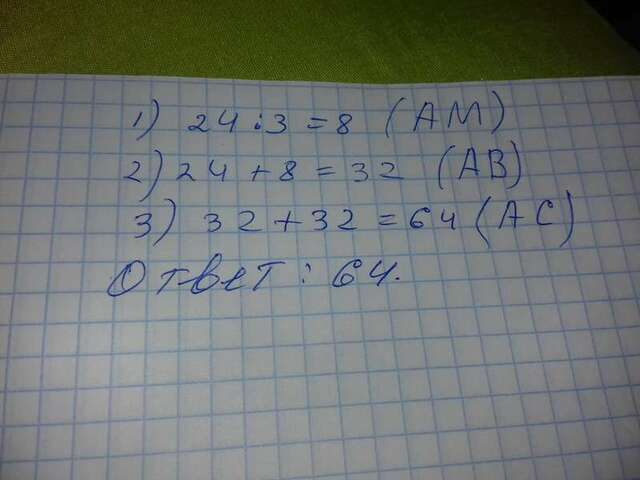 1) 24:3=8 (AM)
2) 24+8=32 (AB)
3) 32+32=64 (AC)
Ответ: 64.